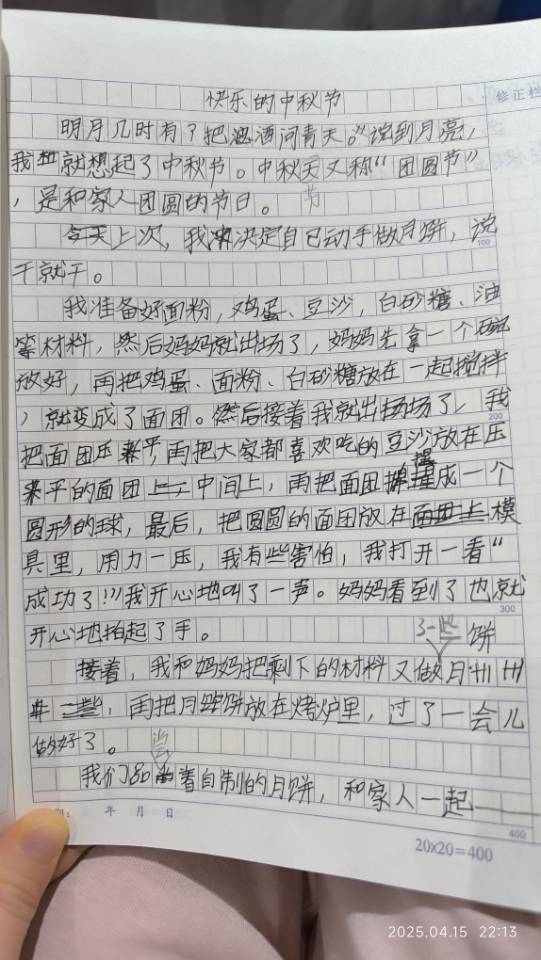 快乐的中秋节
修正栏
明月几时有？把酒问青天。"说到月亮，
我就想起了中秋节。中秋天又称"团圆节"
，是和家人团圆的节日。
节
上次，我决定自己动手做月饼，说
100
干就干。
我准备好面粉，鸡蛋、豆沙，白砂糖、油
等材料，然后妈妈就出场了，妈妈先拿一个碗
放好，再把鸡蛋、面粉、白砂糖放在一起搅拌
，就变成了面团。然后接着我就出场了，我
200
把面团压平，再把大家都喜欢吃的豆沙放在压
平的面团中间上，再把面团搓成一个
圆形的球，最后，把圆圆的面团放在模
具里，用力一压，我有些害怕，我打开一看"
成功了!!!我开心地叫了一声。妈妈看到了也就
300
开心地拍起了手。
了一些 饼
接着，我和妈妈把剩下的材料又做月
再把月饼放在烤炉里，过了一会儿
做好了。
尝
我们品着自制的月饼，和家人一起
400
年 月 日
20x20=400
2025.04.15 22:13